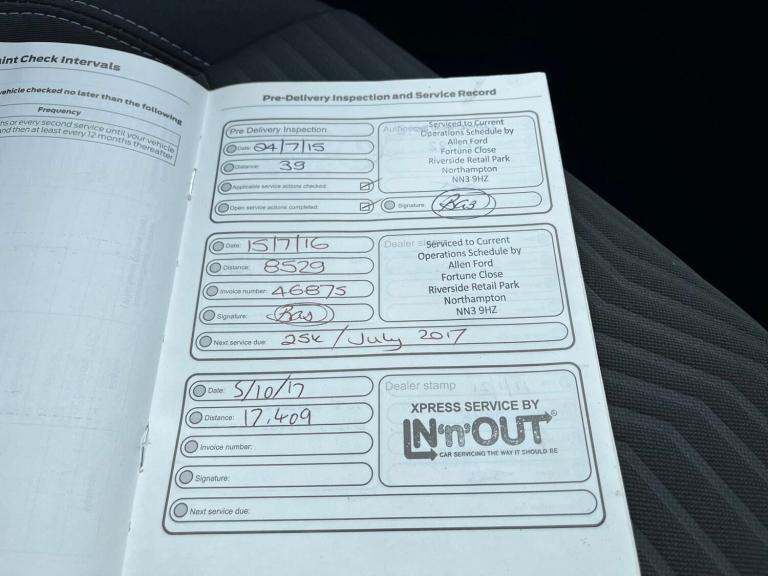 int Check Intervals
vehicle checked no later than the following
Frequency
hs or every second service until your vehicle
and then at least every 12 months thereafter
Pre-Delivery Inspection and Service Record
Pre Delivery Inspection
Date: 04/7/15
Distance: 39
Applicable service actions checked:
Open service actions completed:
Serviced to Current
Operations Schedule by
Allen Ford
Fortune Close
Riverside Retail Park
Northampton
NN3 9HZ
Signature: Bas
Date: 15/7/16
Distance: 8529
Invoice number: 46875
Signature: Bas
Next service due: 25k / July 2017
Dealer
Serviced to Current
Operations Schedule by
Allen Ford
Fortune Close
Riverside Retail Park
Northampton
NN3 9HZ
Date: 5/10/17
Distance: 17,409
Invoice number:
Signature:
Next service due:
Dealer stamp
XPRESS SERVICE BY
IN'n'OUT®
CAR SERVICING THE WAY IT SHOULD BE